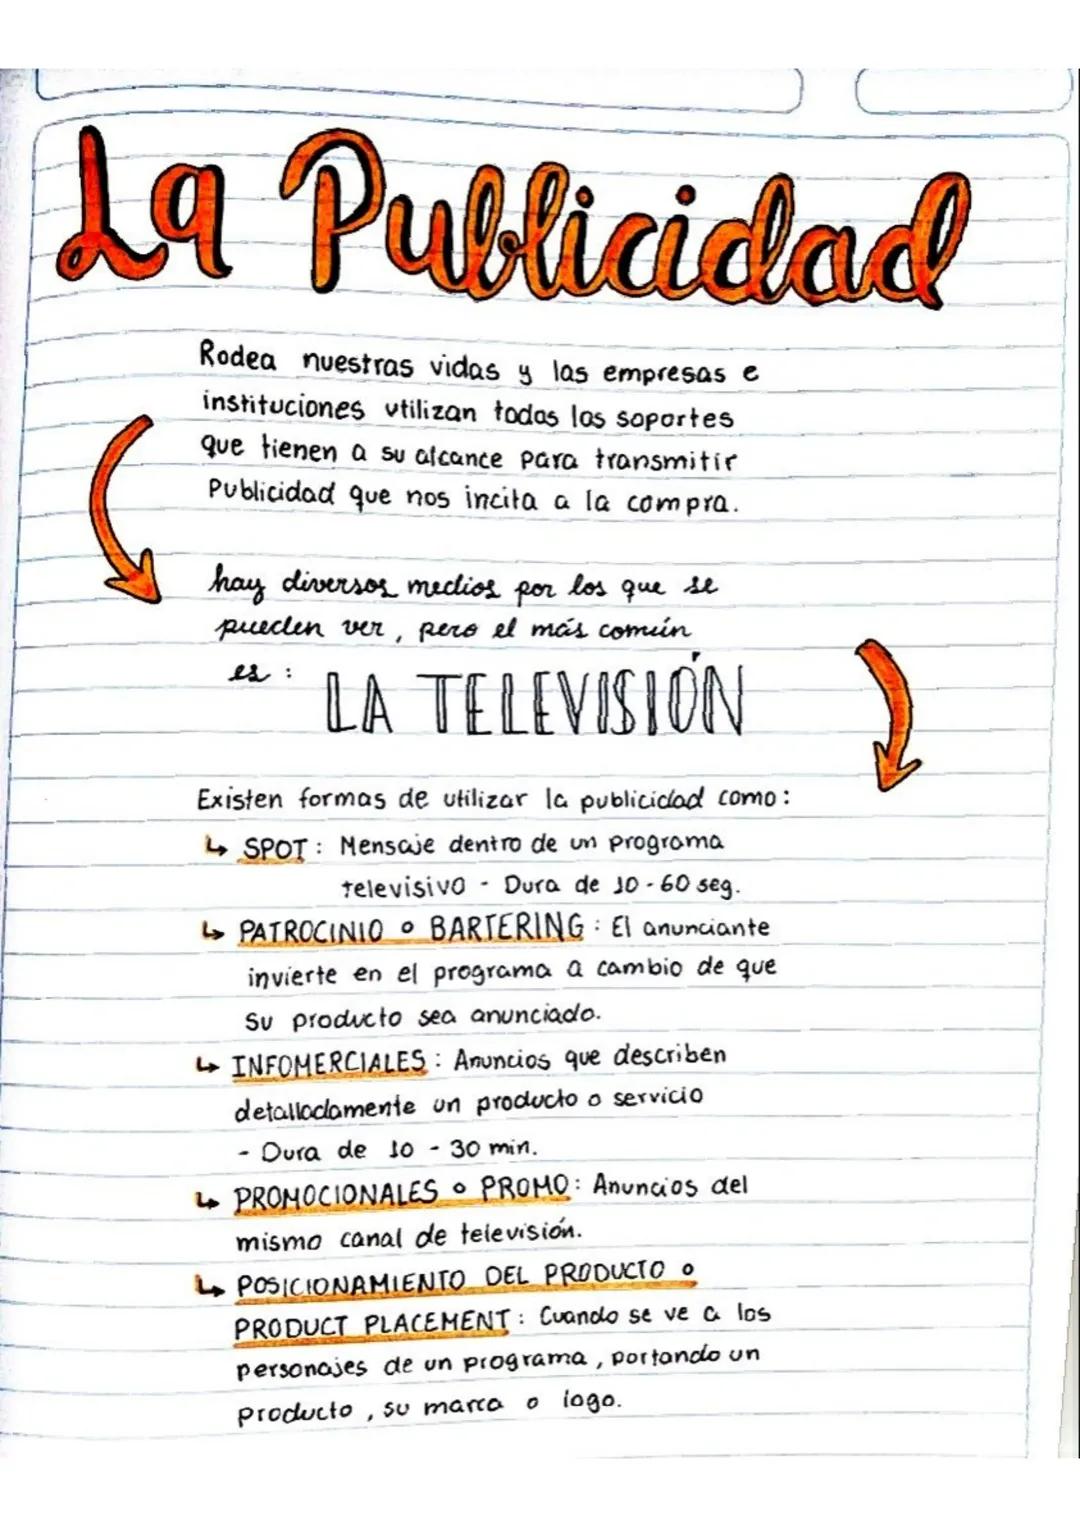 La Publicidad
Rodea nuestras vidas y las empresas e
instituciones utilizan todos los soportes
que tienen a su alcance para transmitir
Publicidad que nos incita a la compra.
hay diversos medios por los que se
pueden ver, pero el más común
es :
LA TELEVISIÓN
Existen formas de utilizar la publicidad como:
↳ SPOT: Mensaje dentro de un programa
televisivo - Dura de 10-60 seg.
↳ PATROCINIO o BARTERING: El anunciante
invierte en el programa a cambio de que
su producto sea anunciado.
↳ INFOMERCIALES: Anuncios que describen
detalladamente un producto o servicio
- Dura de 10 - 30 min.
↳ PROMOCIONALES o PROMO: Anuncios del
mismo canal de televisión.
↳ POSICIONAMIENTO DEL PRODUCTO o
PRODUCT PLACEMENT: Cuando se ve a los
personajes de un programa, portando un
producto, su marca o logo.